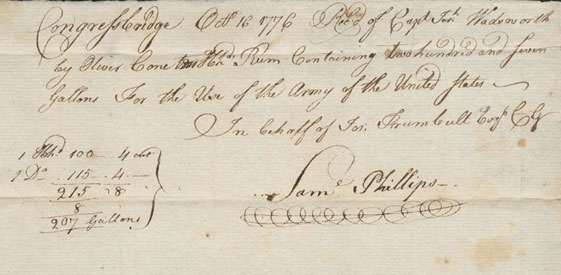 Congressbridge Octb 16 1776 Recd of Capt Jer. Wadsworth
by Oliver Cone two Hhds Rum Containing two hundred and seven
Gallons For the Use of the Army of the United States
In behalf of Jos. Trumbull Esqr C G
1 Hhd 100 4 out
1 Do 115 4
215 8
8
207 Gallons
Saml Phillips